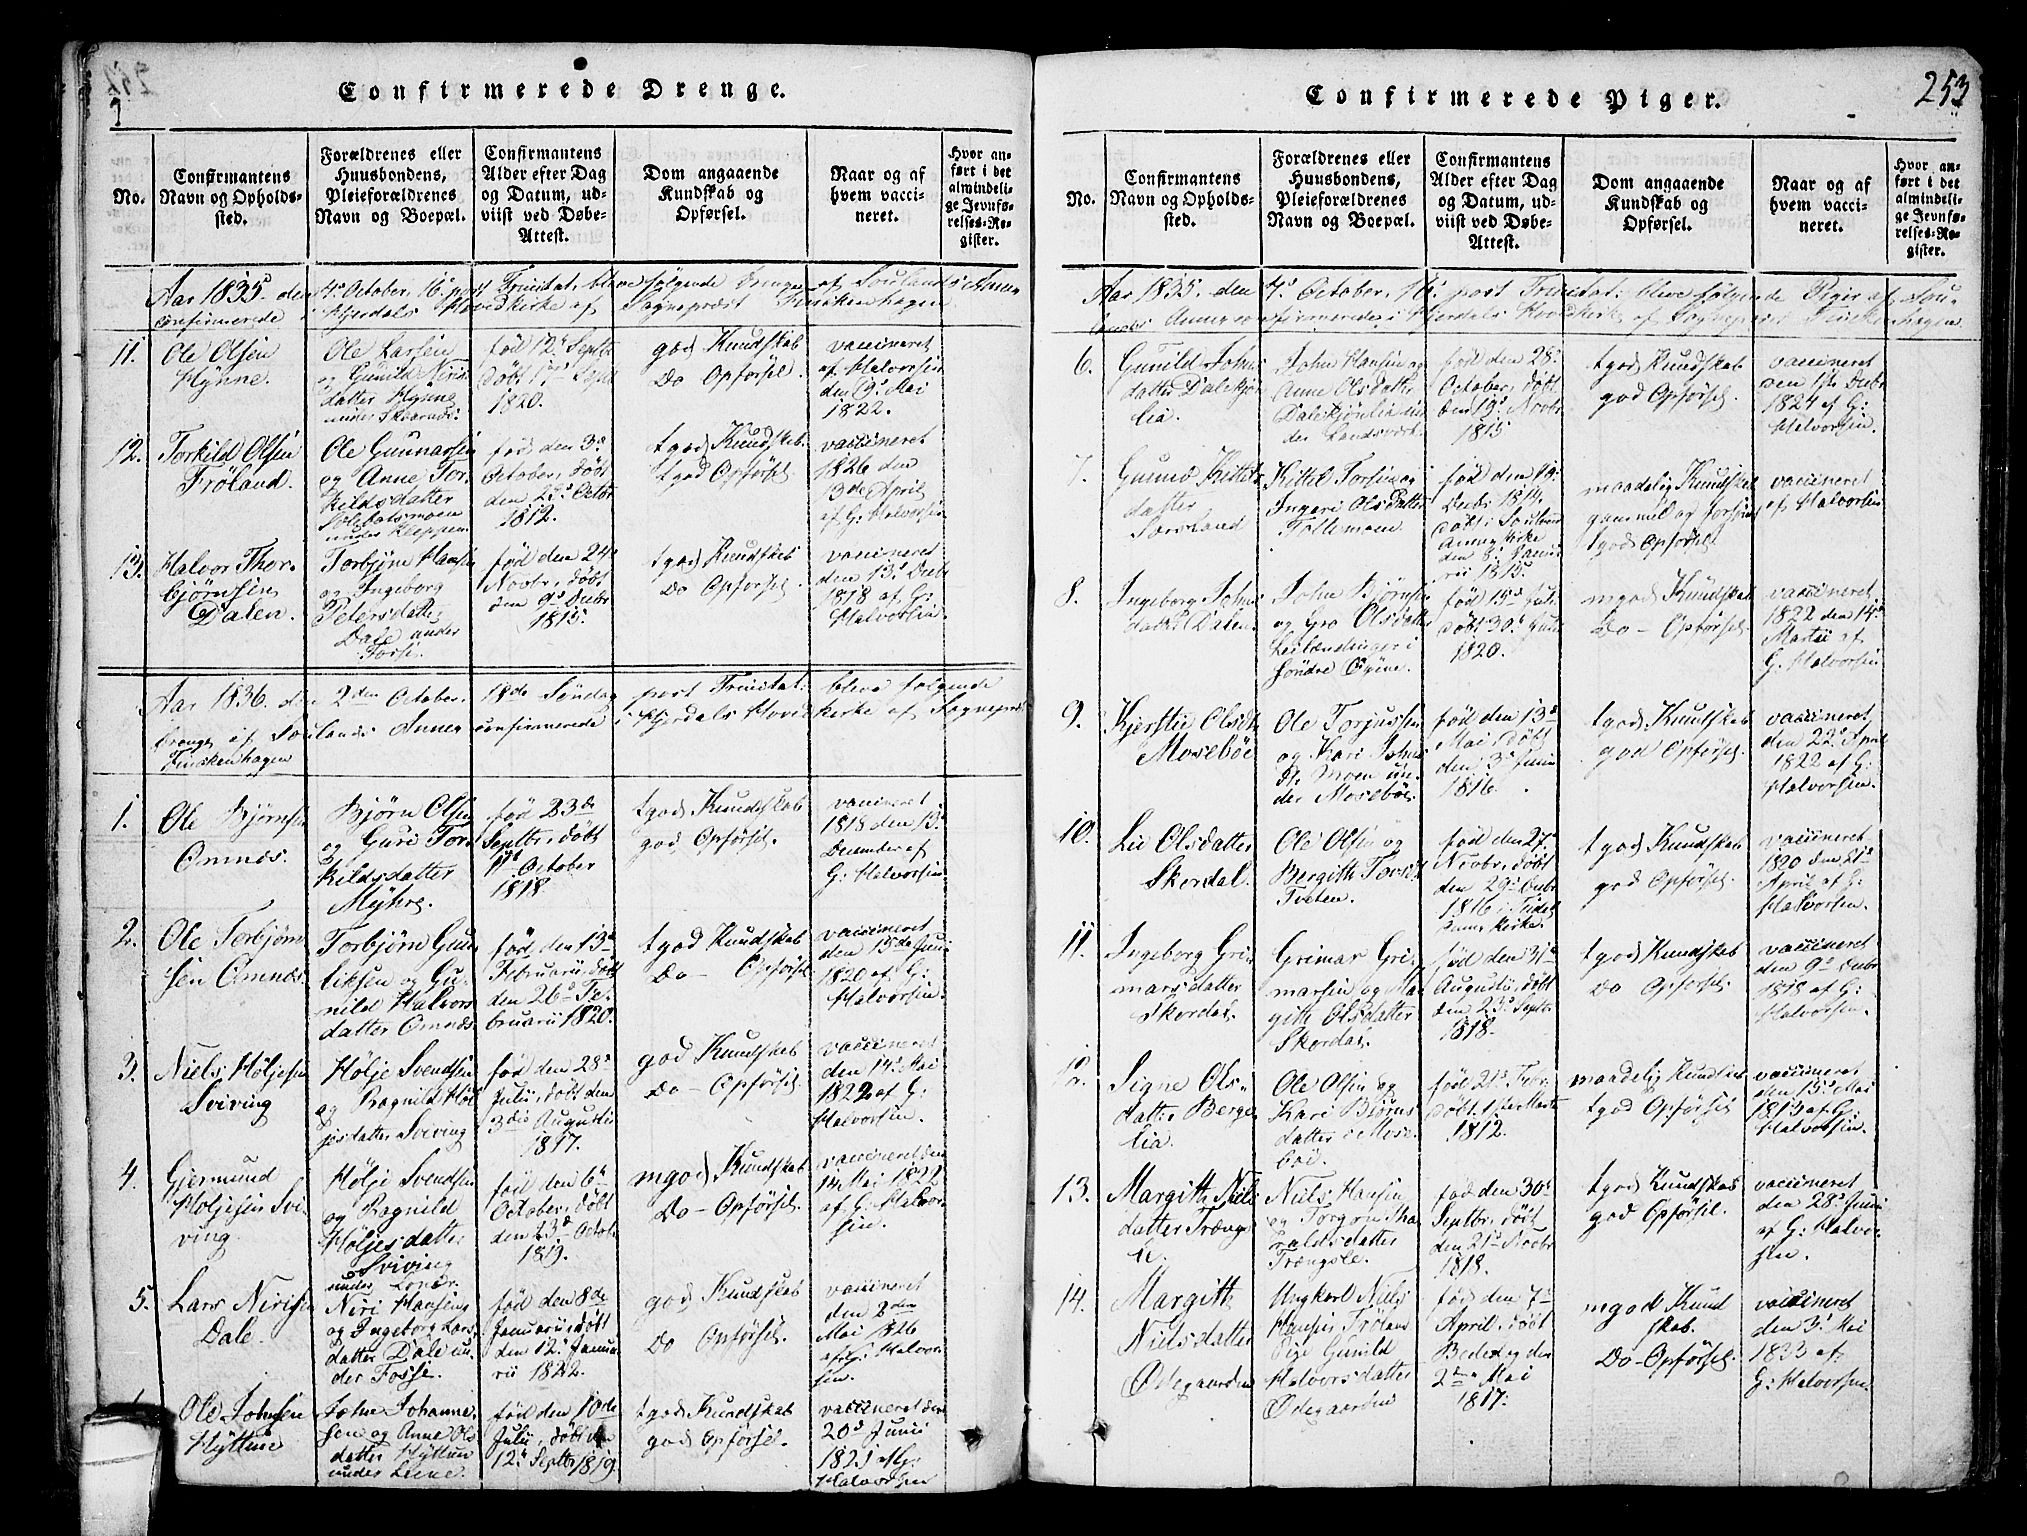 Confirmerede Drenge.
No.
Confirmantens
Navn og Opholds-
sted.
Forældrenes eller
Huusbondens,
Pleieforældrenes
Navn og Boepæl.
Confirmantens
Alder efter Dag
og Datum, ud-
viist ved Døbe-
Attest.
Dom angaaende
Kundskab og
Opførsel.
Naar og af
hvem vacci-
neret.
Hvor an-
ført i det
almindeli-
ge Jevnfø-
relses-Re-
gister.
Aar 1835 den 4de October, 16 post Trinitat. bleve følgende Drenge af Soulands Annex
confirmerede i Hjerdals Hovedkirke af Sognepræst Finckenhagen
11.
Ole Olsen
Hyhne.
Ole Larsen
og Gunild Niris
datter Hynne
under
fød 12te Septbr
døbt Sept
1820.
god Kundskab
Do Opførsel.
vaccineret
af Halvorsen
den 9de Mai
1822.
12.
Torkild Olsen
Frøland.
Ole Gunnarsen
og Anne Tor-
kildsdatter
under Kleppen
fød den 3de
October, døbt
den 23de Octbr
1812.
tgod Kundskab.
tgod Opførsel.
vaccineret
1826 den
13de April
af G: Halvorsen
13.
Halvor Thor-
bjørnsen
Dalen.
Torbjørn Hansen
og Ingeborg
Petersdatter
Dale under
Fosse.
fød den 24de
Novbr, døbt
den 9de Decbr
1815.
tgod Kundskab
Do Opførsel.
vaccineret
den 13de Decbr
1818 af G:
Halvorsen
Aar 1836 den 2den October, 18de Søndag post Trinitat: bleve følgende
Drenge af Soulands Annex confirmerede i Hjerdals Hovedkirke af Sognepræst
Finckenhagen
1.
Ole Bjørnsen
Omnæs.
Bjørn Olsen
og Guri Tor-
kildsdatter
Myhre.
fød 23de
Septbr, døbt
11te October
1818.
tgod Kundskab
god Opførsel.
vaccineret
1818 den 13de
December af
G: Halvorsen.
2.
Ole Torbjørn-
sen Omnæs
Torbjørn Gun-
leiksen og Gu-
nild Halvors-
datter Omnæs
fød den 13de
Februarii, døbt
den 26de Fe-
bruarii 1820.
tgod Kundskab
Do - Opførsel
vaccineret
den 15de Junii
1820 af G:
Halvorsen.
3.
Niels Høljesen
Sviving
Hølje Svendsen
og Ragnild Høl-
jesdatter Sviving
fød den 28de
Julii, døbt den
3die Augustii
1817.
god Kundskab
Do - Opførsel.
vaccineret
den 14de Mai
1822 af G:
Halvorsen.
4.
Gjermund
Høljesen Svi-
ving.
Hølje Svendsen
og Ragnild
Høljesdatter
Sviving
under
fød den 6te
October, døbt
den 23de Octobr.
1819.
mgod Kundskab
Do - Opførsel.
vaccineret den
14 Mai 1822
af G: Halvor-
sen.
5.
Lars Nirisen
Dale.
Niri Hansen
og Ingeborg Lars-
datter Dale un-
der Fosse.
fød den 8de
Januarii, døbt
den 12te Janua-
rii 1822.
god Kundskab
Do Opførsel.
vaccineret
den 2den
Mai 1826
af G: Halvor-
sen.
Ole Johnsen
Hyttun
John Johanne-
sen og Anne Ols-
datter Hyttun
under
fød den 10de
Julii, døbt den
12te Septbr 1819.
tgod Kundskab
god Opførsel.
vaccineret den
20de Junii
1825 af G:
Halvorsen
Confirmerede Piger.
253
No.
Confirmantens
Navn og Opholds-
sted.
Forældrenes eller
Huusbondens,
Pleieforældrenes
Navn og Boepæl.
Confirmantens
Alder efter Dag
og Datum, ud-
viist ved Døbe-
Attest.
Dom angaaende
Kundskab og
Opførsel.
Naar og af
hvem vacci-
neret.
Hvor an-
ført i det
almindeli-
ge Jevnfø-
relses-Re-
gister.
Aar 1835 den 4de October, 16 post Trinitat: bleve følgende Piger af Sou-
lands Annex confirmerede i Hjerdals Hovedkirke af Sognepræst Fincken-
hagen
6.
Gunild Johns-
datter Dalekjøn-
lia.
John Hansen og
Anne Olsdatter
Dalekjønlia un-
der Landsværk.
fød den 28de
October, døbt
den 19de Novbr
1815
tgod Kundskab
god Opførsel.
vaccineret
den Decbr
1824 af G:
Halvorsen.
7.
Kittels-
datter
Kittel Torsen og
Ingeri Olsdatter
fød den 19de
Decbr 1814,
døbt i Soulands
Annexkirke
den 8de Janua-
rii 1815.
maadelig Kundskab
gammel og
tgod Opførsel.
vaccineret
af Halvorsen
8.
Ingeborg Johns-
datter Dalen
John Bjørnsen
og Gro Olsdatter
Leilændinger i
Søndre
fød 15de
døbt 30te
1820.
mgod Kundskab
Do - Opførsel.
vaccineret,
1822 den 14de
Martii af
G. Halvorsen
9.
Kjerstie Olsdtr
Mosebøe
Ole Torjussen
og Kari Johns
Dtr Moen un-
der Mosebøe.
fød den 13de
Mai, døbt
den 3de Junii
1816.
tgod Kundskab
god Opførsel.
vaccineret,
den 22de April
1822 af G:
Halvorsen.
10.
Liv Olsdatter
Skordal.
Ole Olsen og
Bergith Tovsdtr
Tveten.
fød den 27de
Novbr, døbt
den 29de Decbr
1816 i
kirke.
tgod Kundskab
god Opførsel.
vaccineret
1820 den 21de
April af G:
Halvorsen.
11.
Ingeborg Gri-
marsdatter
Skordal.
Grimar Gri-
marsen og Mar-
gith Olsdatter
Skordal.
fød den 31te
Augustii, døbt
den 23de Septbr
1818.
tgod Kundskab
Do Opførsel.
vaccineret
den 9de Decbr
1818 af G:
Halvorsen.
12.
Signe Ols-
datter Berge-
lia.
Ole Olsen og
Kari Bjørns-
datter i Mose-
boe.
fød 21de Febr.
døbt 1ste Marts
1812.
maadelig Kundskab
tgod Opførsel
vaccineret
den 15de Mai
1813 af G:
Halvorsen.
13.
Margith Niels-
datter Trængs-
le.
Niels Hansen
og Torgon Tha-
raldsdatter
Trængsle.
fød den 30te
Septbr, døbt
den 21de Novbr
1818.
tgod Kundskab
god Opførsel.
vaccineret
den 28de Junii
af G: Halvor-
sen.
14.
Margith
Nielsdatter
Ødegaarden
Ungkarl Niels
Hansen Frølan
Pige Gunild
Halvorsdatter
Ødegaarden
fød den 7de
April, døbt
Bededag den
2den Mai
1817.
mgod Kund
skab.
Do - Opførsel.
vaccineret
den 3de Mai
1833 af
G: Halvorsen.